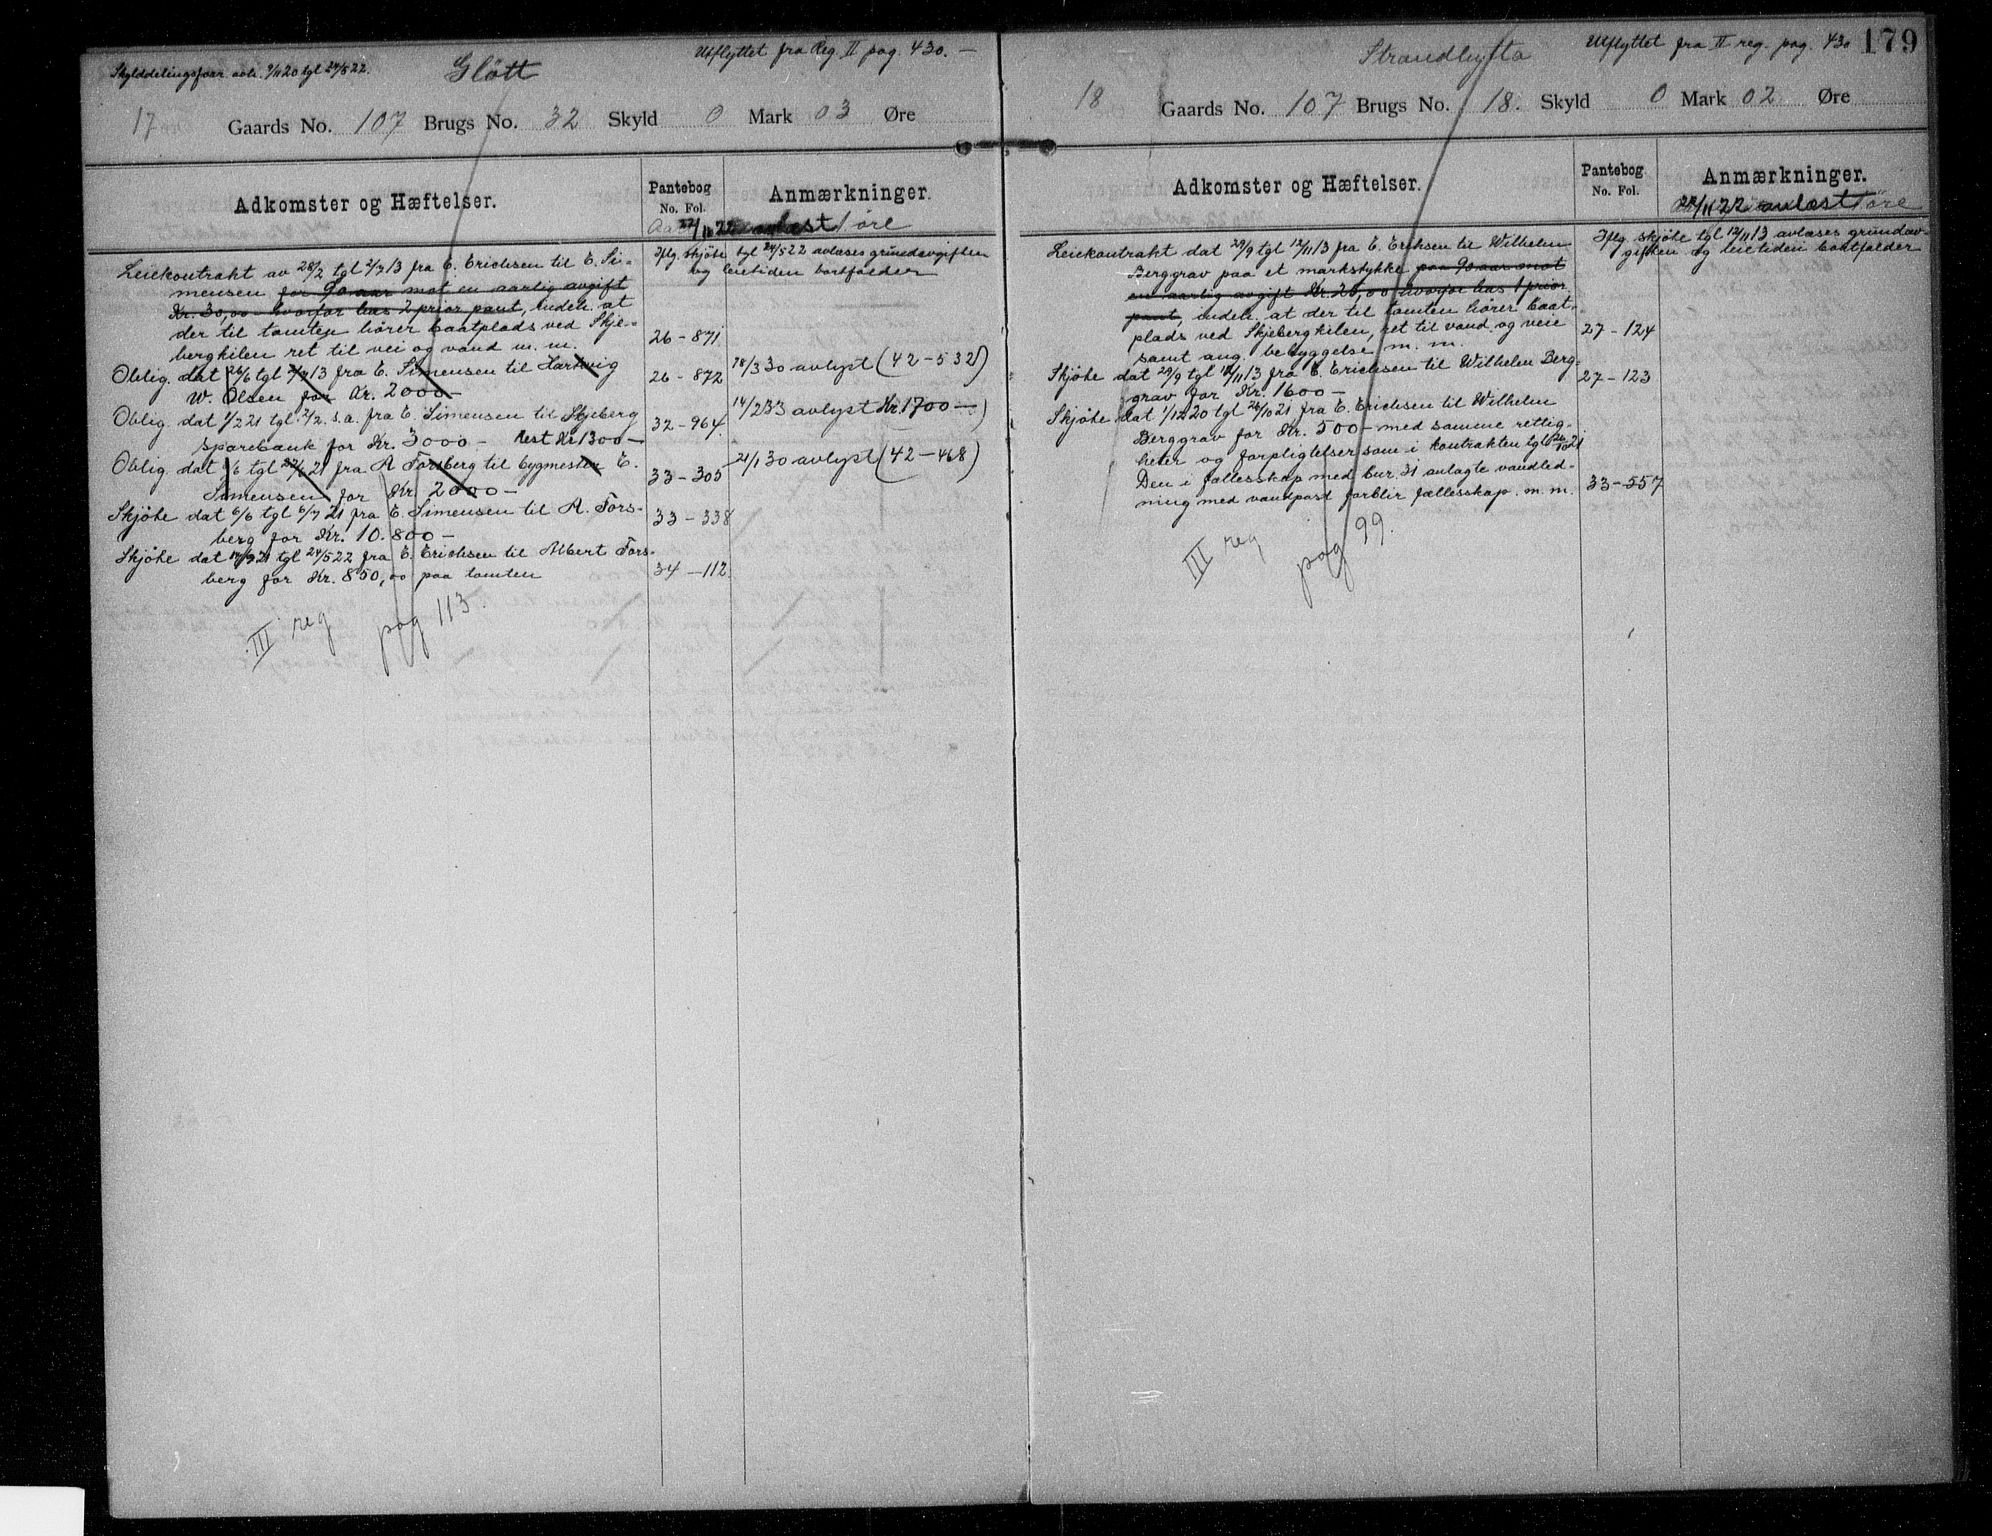 Skylddelingsforr. avh. 9/11 20 tgl 24/5 22.
Glött
Utflyttet fra Reg. II pag. 430. —
17 Gaards No. 107 Brugs No. 32 Skyld 0 Mark 03 Øre
Adkomster og Hæftelser.
Pantebog
No. Fol.
Anmærkninger.
22/11 22 avlæst 1 øre
Leiekontrakt av 28/2 tgl 2/7 13 fra E. Erichsen til E. Si-
mensen for 90 aar mot en aarlig avgift
Kr. 30,00 hvorfor has 2 prior. pant, indeh. at
der til tomten hører baatplads ved Skje-
bergkilen ret til vei og vand m. m.
26 - 871
Iflg. skjöte tgl 24/5 22 avløses grundavgiften
og leietiden bortfalder
Oblig. dat 26/6 tgl 2/7 13 fra E. Simensen til Hartvig
W. Olsen for Kr. 2000 —
26 - 872
28/3 30 avlyst (42 - 532)
Oblig dat 1/2 21 tgl. 2/2 s.a. fra E. Simensen til Skjeberg
sparebank for Kr. 3000 — rest Kr 1300 —
32 - 964
14/2 33 avlyst Kr. 1700 —)
Oblig dat 6/6 tgl 22/6 21 fra A Forsberg til bygmester E.
Simensen for Kr. 2000 —
33 - 305
21/1 30 avlyst (42 - 468)
Skjöte dat 6/6 tgl 6/7 21 fra E. Simensen til A. Fors-
berg for Kr. 10.800 —
33 - 338
Skjöte dat 14/9 21 tgl 24/5 22 fra E. Erichsen til Albert Fors-
berg for Kr. 850,00 paa tomten
34 - 112.
III reg pag 113.
179
Strandhytta
Utflyttet fra II reg. pag. 430
18 Gaards No. 107 Brugs No. 18. Skyld 0 Mark 02 Øre
Adkomster og Hæftelser.
Pantebog
No. Fol.
Anmærkninger.
22/11 22 avlæst 1 øre
Leiekontrakt dat 29/9 tgl 12/11 13 fra E. Eriksen til Wilhelm
Berggrav paa et markstykke paa 90 aar mot
en aarlig avgift Kr. 25,00 hvorfor has 1 prior.
pant, indeh. at der til tomten hører baat-
plads ved Skjebergkilen, ret til vand og veie
samt ang. bebyggelse m. m.
27 - 124
Iflg. skjöte tgl 12/11 13 avløses grundav-
giften og leietiden bortfalder
Skjöte dat 29/9 tgl 12/11 13 fra E. Erichsen til Wilhelm Berg-
grav for Kr. 1600 —
27 - 123
Skjöte dat 1/12 20 tgl 26/10 21 fra E. Erichsen til Wilhelm
Berggrav for Kr. 500 — med samme rettig-
heter og forpligtelser som i kontrakten tgl 26/10 21
Den i fællesskap med bur. 31 anlagte vandled-
ning med vandpost forblir fællesskap. m. m.
33 - 557
III reg pag 99.